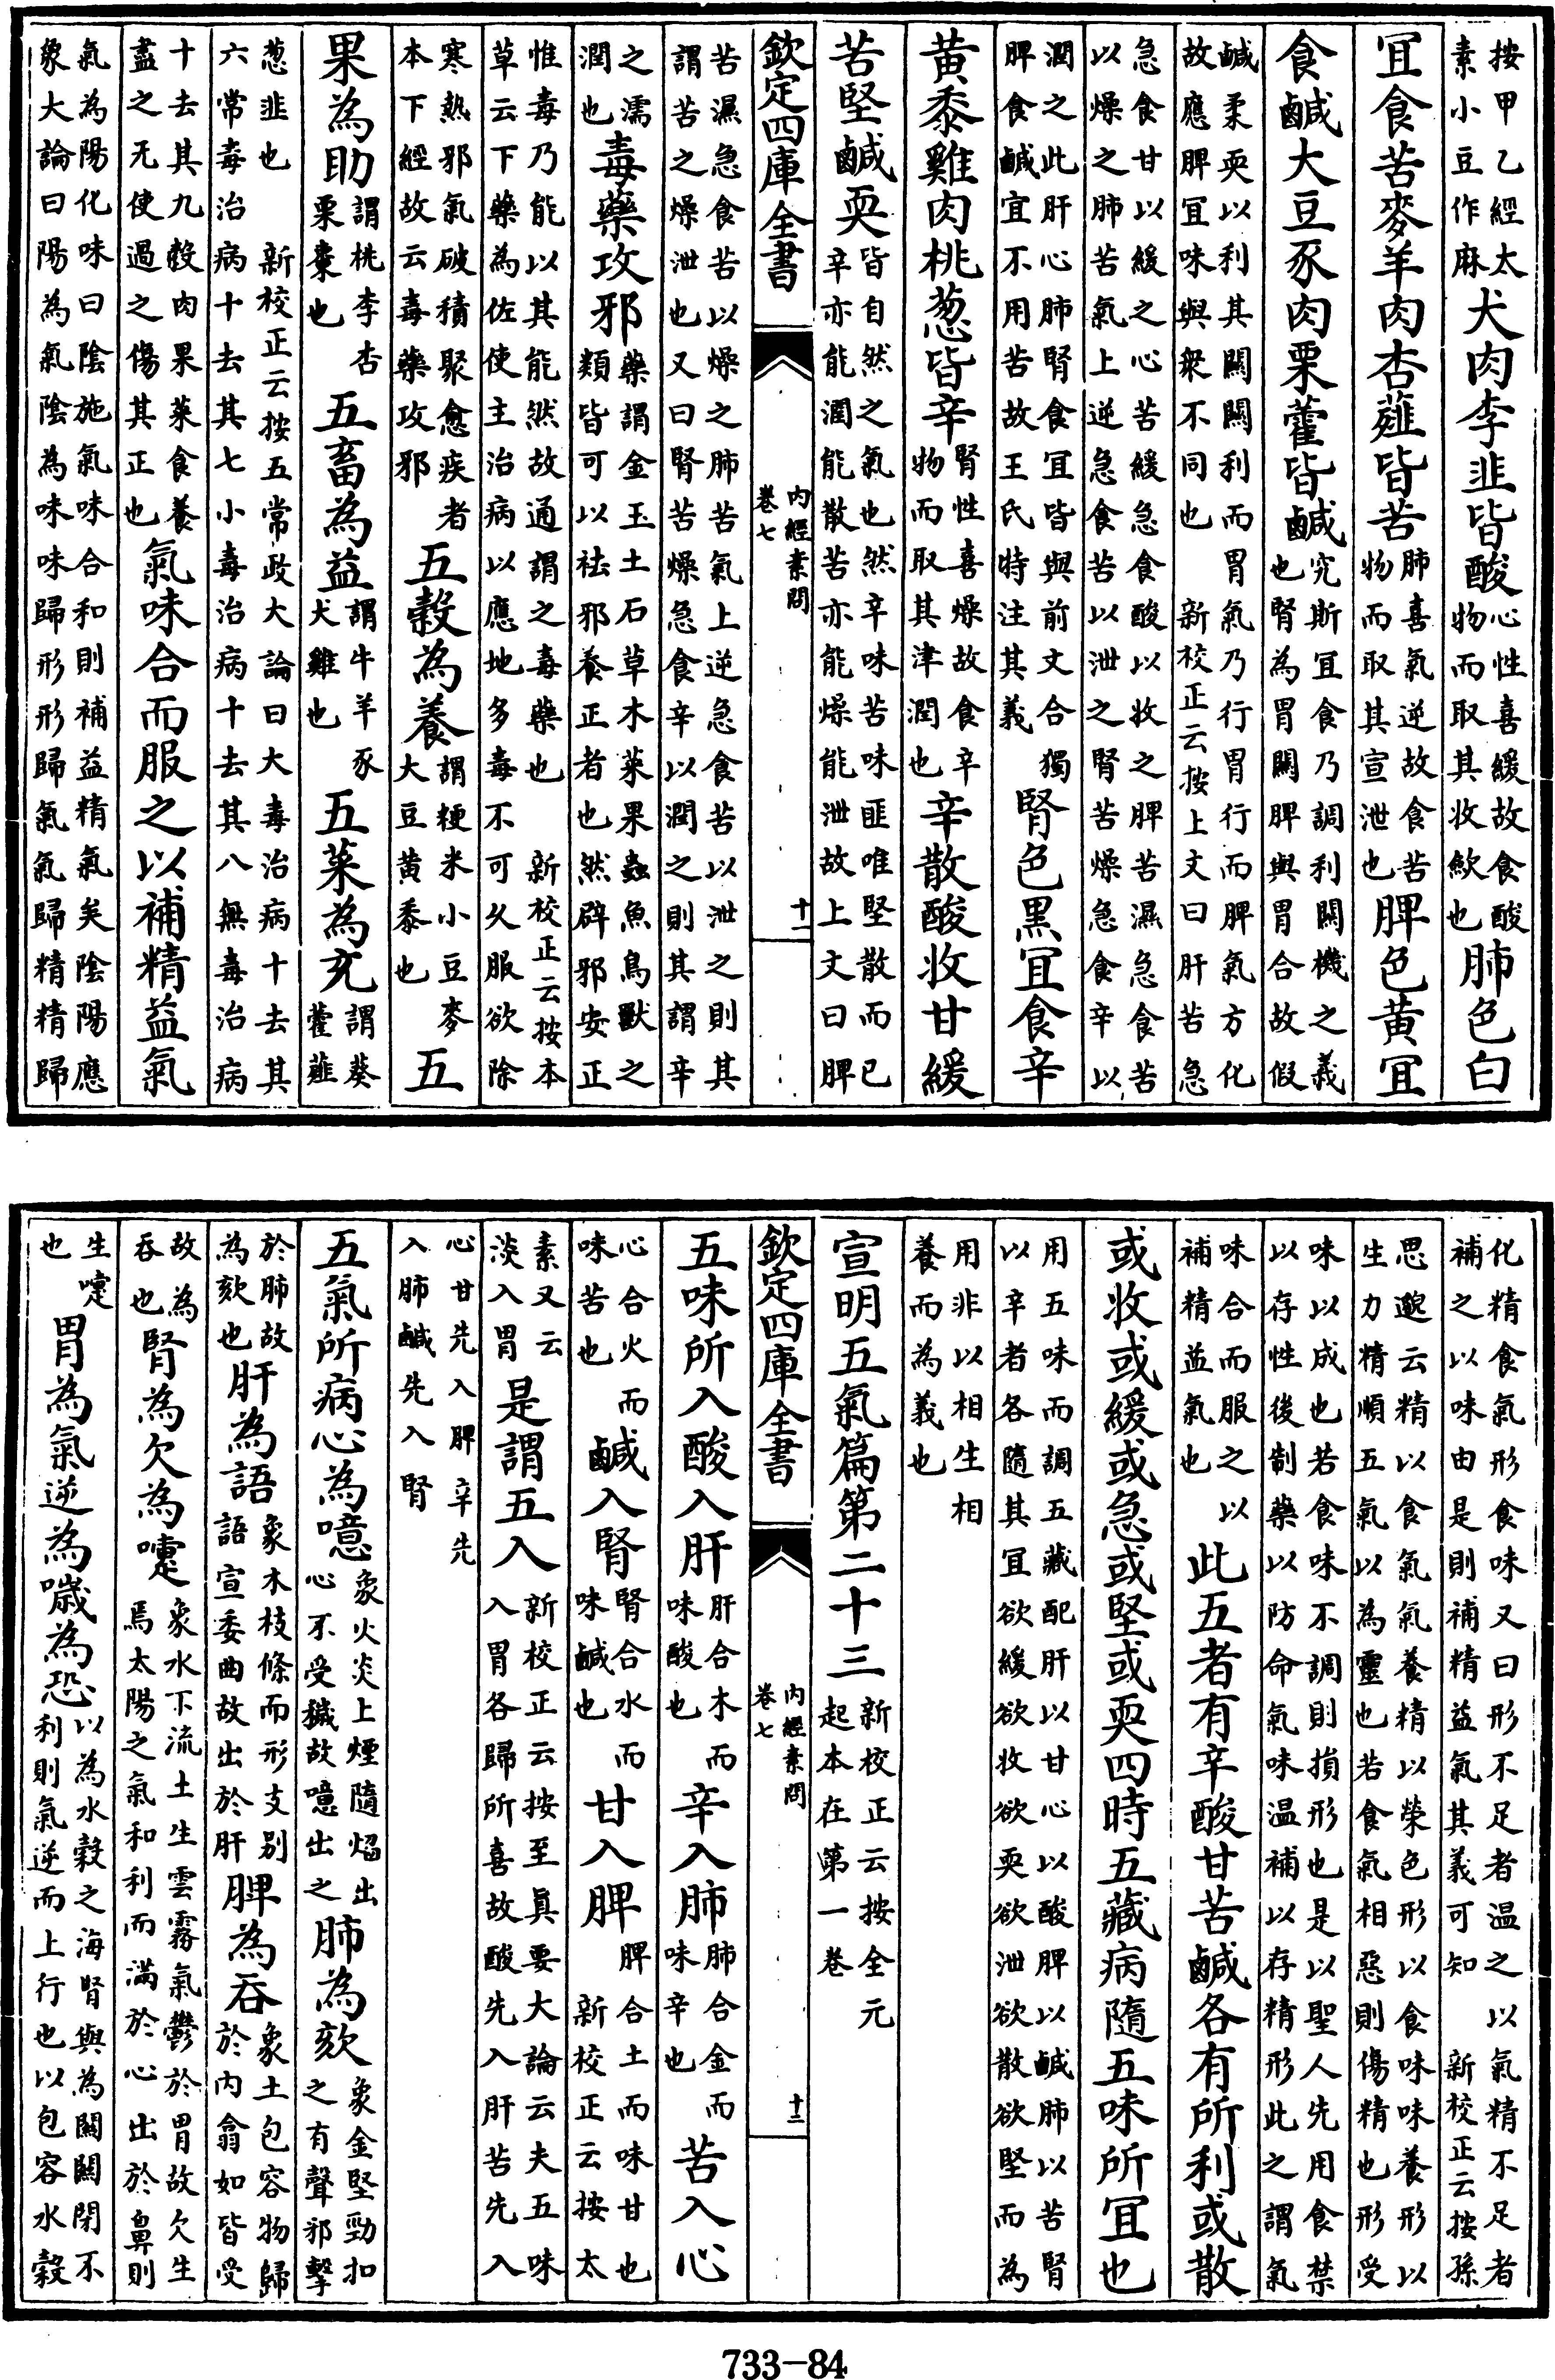 按甲乙經太素小豆作麻犬肉李韭皆酸心性喜緩故食酸物而取其收斂也肺色白
宜食苦麥羊肉杏薤皆苦肺喜氣逆故食苦物而取其宣泄也脾色黃宜
食鹹大豆豕肉栗藿皆鹹究斯宜食乃調利關機之義也腎為胃關脾與胃合故假
鹹柔耎以利其關關利而胃氣乃行胃行而脾氣方化故應脾宜味與衆不同也 新校正云按上文曰肝苦急
急食甘以緩之心苦緩急食酸以收之脾苦濕急食苦以燥之肺苦氣上逆急食苦以泄之腎苦燥急食辛以
潤之此肝心肺腎食宜皆與前文合獨脾食鹹宜不用苦故王氏特注其義腎色黑宜食辛
黃黍雞肉桃葱皆辛腎性喜燥故食辛物而取其津潤也辛散酸收甘緩
苦堅鹹耎皆自然之氣也然辛味苦味匪唯堅散而已辛亦能潤能散苦亦能燥能泄故上文曰脾
欽定四庫全書 內經素問 卷七 十一
苦濕急食苦以燥之肺苦氣上逆急食苦以泄之則其謂苦之燥泄也又曰腎苦燥急食辛以潤之則其謂辛
之濡潤也毒藥攻邪藥謂金玉土石草木菜果蟲魚鳥獸之類皆可以祛邪養正者也然辟邪安正
惟毒乃能以其能然故通謂之毒藥也 新校正云按本草云下藥為佐使主治病以應地多毒不可久服欲除
寒熱邪氣破積聚愈疾者本下經故云毒藥攻邪五穀為養謂粳米小豆麥大豆黃黍也五
果為助謂桃李杏栗棗也五畜為益謂牛羊豕犬雞也五菜為充謂葵藿薤
葱韭也 新校正云按五常政大論曰大毒治病十去其六常毒治病十去其七小毒治病十去其八無毒治病
十去其九穀肉果菜食養盡之无使過之傷其正也氣味合而服之以補精益氣
氣為陽化味曰陰施氣味合和則補益精氣矣陰陽應象大論曰陽為氣陰為味味歸形形歸氣氣歸精精歸
化精食氣形食味又曰形不足者温之以氣精不足者補之以味由是則補精益氣其義可知 新校正云按孫
思邈云精以食氣氣養精以榮色形以食味味養形以生力精順五氣以為靈也若食氣相惡則傷精也形受
味以成也若食味不調則損形也是以聖人先用食禁以存性後制藥以防命氣味温補以存精形此之謂氣
味合而服之以補精益氣也此五者有辛酸甘苦鹹各有所利或散
或收或緩或急或堅或耎四時五藏病隨五味所宜也
用五味而調五藏配肝以甘心以酸脾以鹹肺以苦腎以辛者各隨其宜欲緩欲收欲耎欲泄欲散欲堅而為
用非以相生相養而為義也
宣明五氣篇第二十三新校正云按全元起本在第一卷
欽定四庫全書 內經素問 卷七 十二
五味所入酸入肝肝合木而味酸也辛入肺肺合金而味辛也苦入心
心合火而味苦也鹹入腎腎合水而味鹹也甘入脾脾合土而味甘也 新校正云按太
素又云淡入胃是謂五入新校正云按至眞要大論云夫五味入胃各歸所喜故酸先入肝苦先入
心甘先入脾辛先入肺鹹先入腎
五氣所病心為噫象火炎上煙隨焰出心不受穢故噫出之肺為欬象金堅勁扣之有聲邪擊
於肺故為欬也肝為語象木枝條而形支别語宣委曲故出於肝脾為吞象土包容物歸於内翕如皆受
故為吞也腎為欠為嚏象水下流土生雲霧氣鬱於胃故欠生焉太陽之氣和利而滿於心出於鼻則
生嚏也胃為氣逆為噦為恐以為水穀之海腎與為關關閉不利則氣逆而上行也以包容水穀
733-84